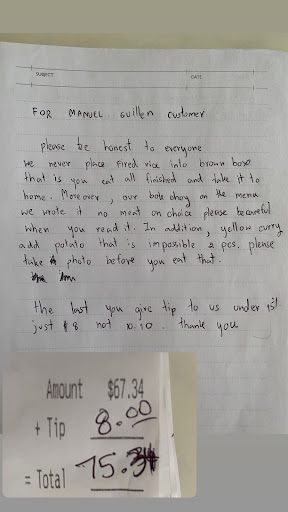 SUBJECT
DATE
FOR MANUEL Guillen customer
please be honest to everyone
we never place Fired rice into brown boxe
that is you eat all finished and take it to
home. Moreover, our bok choy on the menu
we wrote it no meat on choice please be careful
when you read it. In addition, yellow curry
add potato that is impossible 2 pcs. please
take photo before you eat that.
the last you give tip to us under 15%
just $8 not 10.10. thank you
Amount $67.34
+ Tip 8.00
= Total 75.34